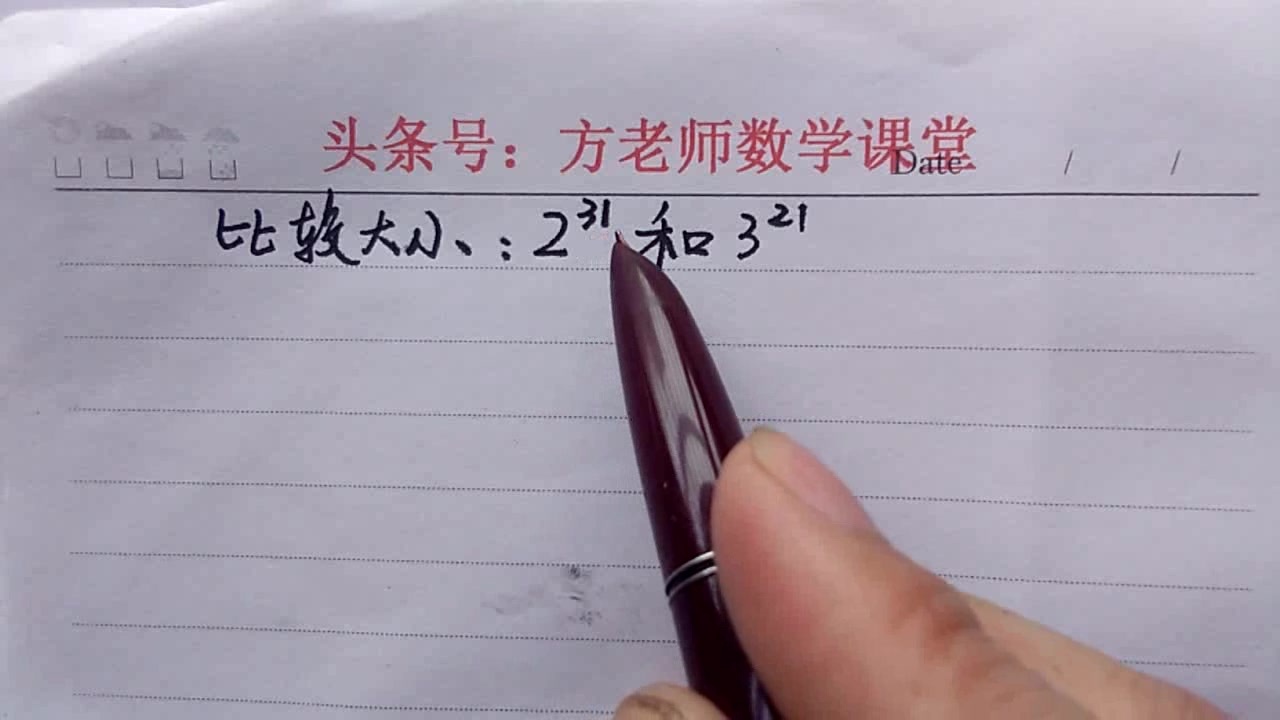 头条号：方老师数学课堂
Date / /
比较大小：2³¹和3²¹